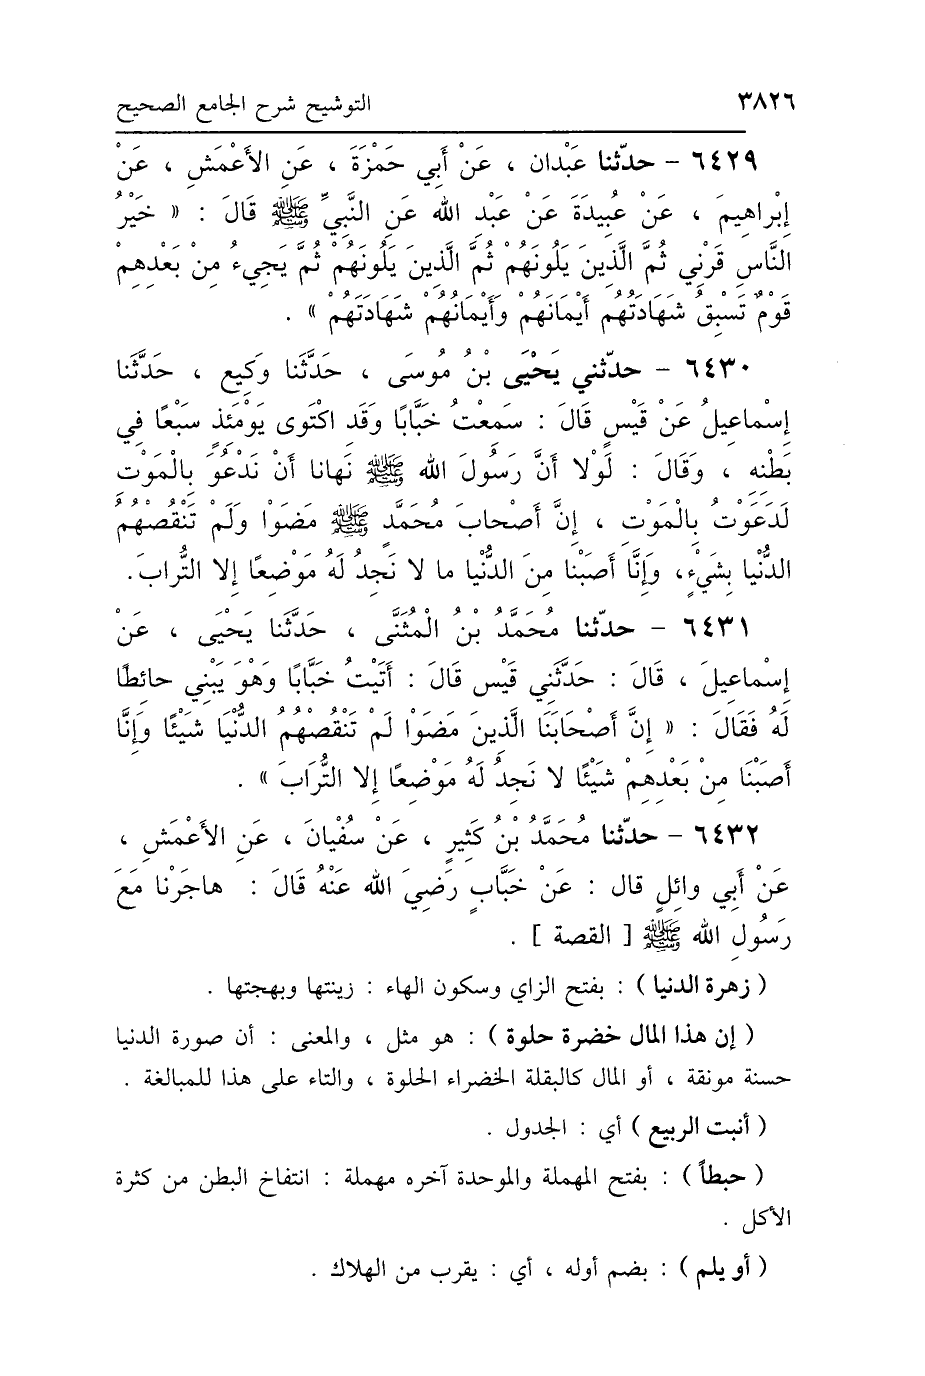 ٣٨٢٦ التوشيح شرح الجامع الصحيح
٦٤٢٩ - حدّثنا عَبْدان ، عَنْ أَبِي حَمْزَةَ ، عَنِ الأَعْمَشِ ، عَنْ
إِبْراهِيمَ ، عَنْ عُبِيدَةَ عَنْ عَبْدِ الله عَنِ النَّبِيِّ ﷺ قَالَ : « خَيْرُ
النَّاسِ قَرْنِي ثُمَّ الَّذِينَ يَلُونَهُمْ ثُمَّ الَّذِينَ يَلُونَهُمْ ثُمَّ يَجِيءُ مِنْ بَعْدِهِمْ
قَوْمٌ تَسْبِقُ شَهَادَتُهُم أَيْمَانَهُمْ وَأَيْمَانُهُمْ شَهَادَتَهُمْ » .
٦٤٣٠ - حدّثني يَحْيَى بْنُ مُوسَى ، حَدَّثَنا وَكِيع ، حَدَّثَنا
إِسْماعِيلُ عَنْ قَيْسٍ قَالَ : سَمِعْتُ خَبَّابًا وَقَدِ اكْتَوى يَوْمَئِذٍ سَبْعًا فِي
بَطْنِهِ ، وَقَالَ : لَوْلا أَنَّ رَسُولَ الله ﷺ نَهانا أَنْ نَدْعُوَ بِالْمَوْتِ
لَدَعَوْتُ بِالْمَوْتِ ، إِنَّ أَصْحابَ مُحَمَّدٍ ﷺ مَضَوْا وَلَمْ تَنْقُصْهُمُ
الدُّنْيا بِشَيْءٍ، وَإِنَّا أَصَبْنا مِنَ الدُّنْيا ما لا نَجِدُ لَهُ مَوْضِعًا إِلا التُّرابَ.
٦٤٣١ - حدّثنا مُحَمَّدُ بْنُ الْمُثَنَّى ، حَدَّثَنا يَحْيَى ، عَنْ
إِسْماعِيلَ ، قَالَ : حَدَّثَنِي قَيْس قَالَ : أَتَيْتُ خَبَّابًا وَهْوَ يَبْنِي حائِطًا
لَهُ فَقَالَ : « إِنَّ أَصْحَابَنَا الَّذِينَ مَضَوْا لَمْ تَنْقُصْهُمُ الدُّنْيَا شَيْئًا وَإِنَّا
أَصَبْنَا مِنْ بَعْدِهِمْ شَيْئًا لا نَجِدُ لَهُ مَوْضِعًا إِلا التُّرَابَ » .
٦٤٣٢ - حدّثنا مُحَمَّدُ بْنُ كَثِيرٍ ، عَنْ سُفْيانَ ، عَنِ الأَعْمَشِ ،
عَنْ أَبِي وائِلٍ قال : عَنْ خَبَّابٍ رَضِيَ الله عَنْهُ قَالَ : هاجَرْنا مَعَ
رَسُولِ الله ﷺ [ القصة ] .
( زهرة الدنيا ) : بفتح الزاي وسكون الهاء : زينتها وبهجتها .
( إن هذا المال خضرة حلوة ) : هو مثل ، والمعنى : أن صورة الدنيا
حسنة مونقة ، أو المال كالبقلة الخضراء الحلوة ، والتاء على هذا للمبالغة .
( أنبت الربيع ) أي : الجدول .
( حبطاً ) : بفتح المهملة والموحدة آخره مهملة : انتفاخ البطن من كثرة
الأكل .
( أو يلم ) : بضم أوله ، أي : يقرب من الهلاك .